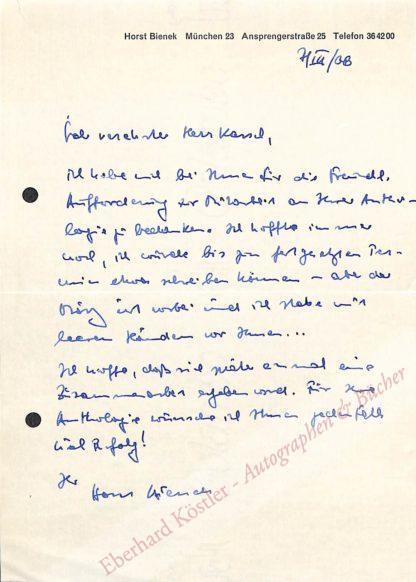 Horst Bienek München 23 Ansprengerstraße 25 Telefon 364200
7/III/68
Sehr verehrter Herr Kassel,
ich habe mich bei Ihnen für die freundl.
Aufforderung zur Mitarbeit an Ihrer Antho-
logie zu bedanken. Ich hoffte immer
noch, ich würde bis zum festgesetzten Ter-
min etwas schreiben können – aber der
März ist vorbei und ich stehe mit
leeren Händen vor Ihnen...
Ich hoffe, daß sich später einmal eine
Zusammenarbeit ergeben wird. Für Ihre
Anthologie wünsche ich Ihnen jedenfalls
viel Erfolg!
Ihr
Horst Bienek
Eberhard Köstler - Autographen & Bücher